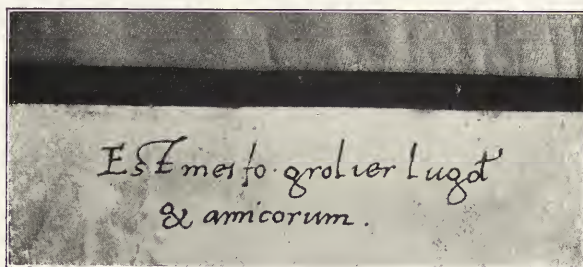 Est mei Io. grolier lugd'
& amicorum.